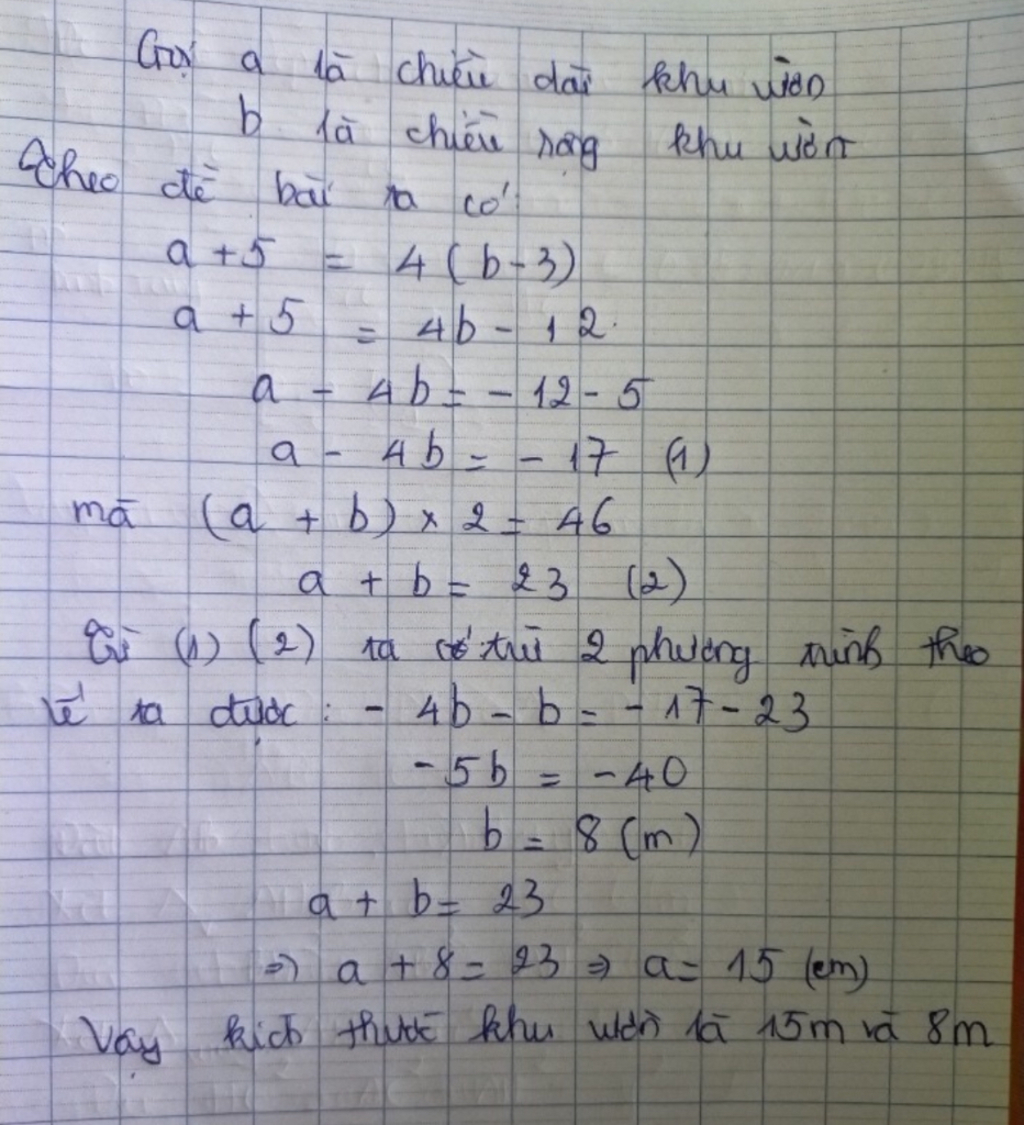 Gọi a là chiều dài khu vườn
b là chiều rộng khu vườn
Theo đề bài ta có:
a + 5 = 4 ( b - 3)
a + 5 = 4b - 12.
a - 4b = - 12 - 5
a - 4b = - 17 (1)
mà (a + b) × 2 = 46
a + b = 23 (2)
Từ (1) (2) ta có trừ 2 phương trình theo
vế ta được : - 4b - b = - 17 - 23
-5b = -40
b = 8 (m)
a + b = 23
⇒ a + 8 = 23 ⇒ a = 15 (cm)
Vậy kích thước khu vườn là 15m và 8m